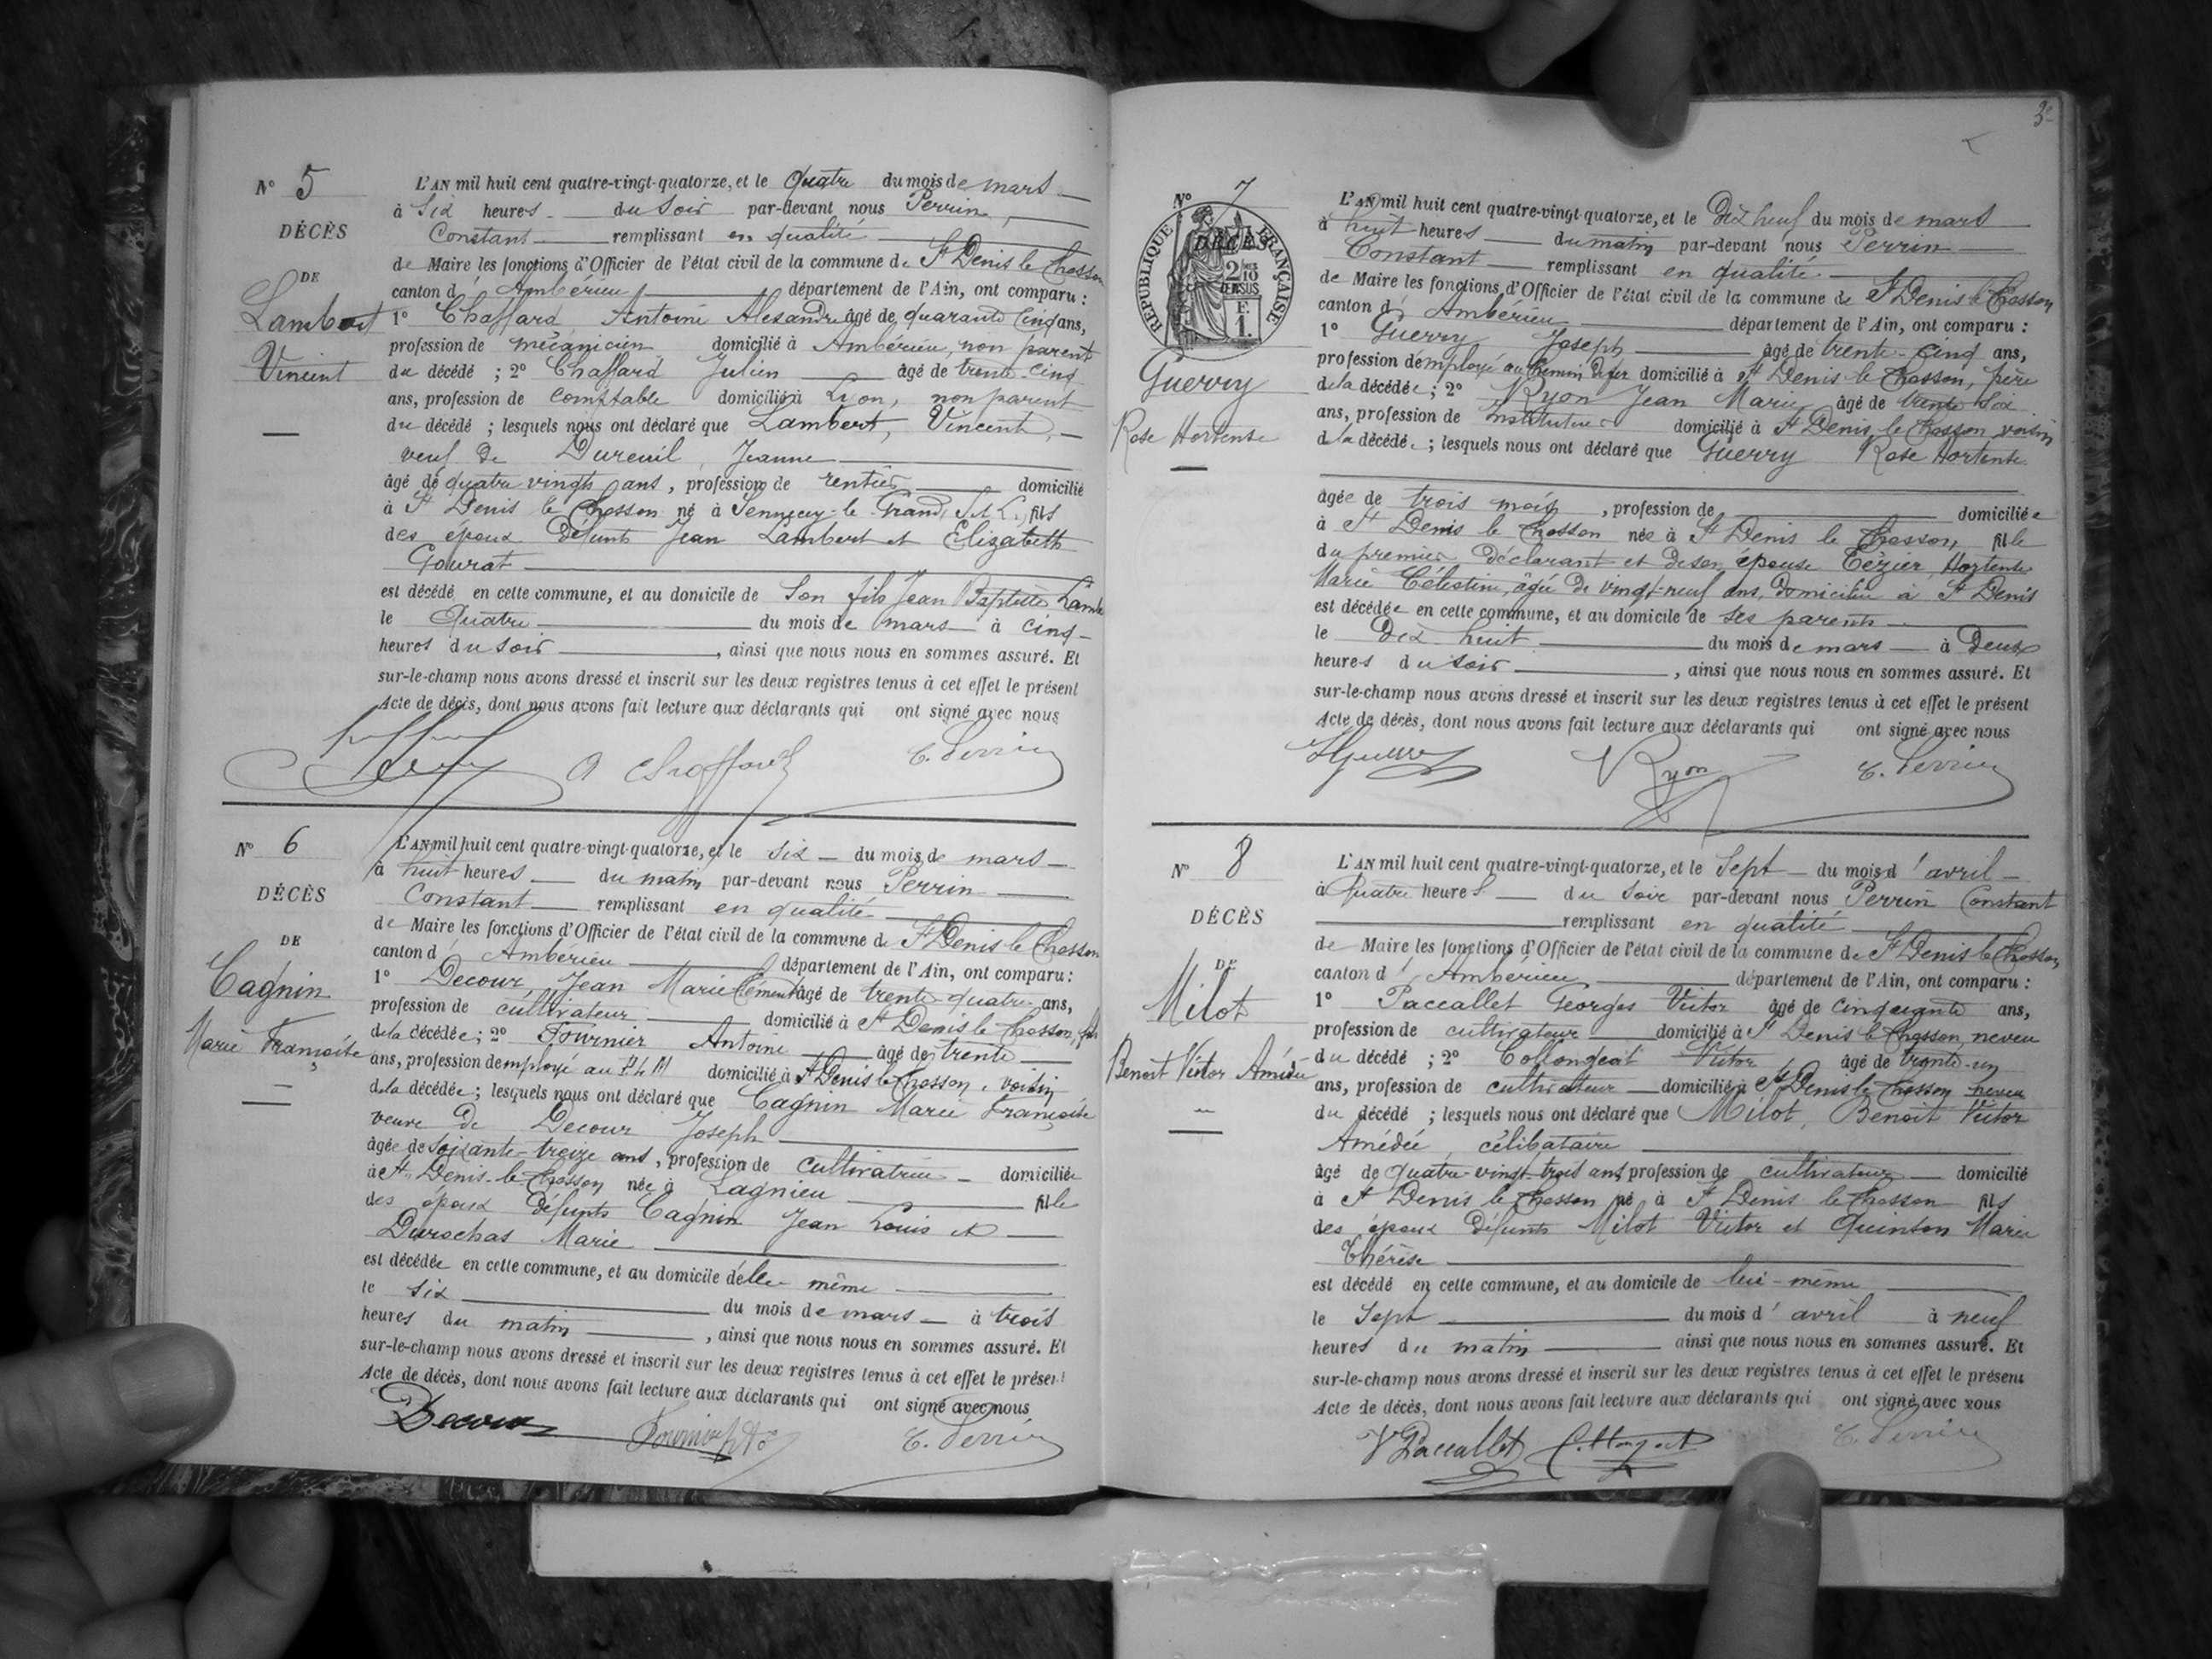 N° 5
DÉCÈS
DE
Lambert
Vincent
L'AN mil huit cent quatre-vingt-quatorze, et le quatre du mois de mars
à six heures du soir par-devant nous Perrin,
Constant remplissant en qualité
de Maire les fonctions d'Officier de l'état civil de la commune de St Denis le Chosson
canton d'Ambérieu département de l'Ain, ont comparu :
1° Chaffard Antoine Alexandre âgé de quarante cinq ans,
profession de mécanicien domicilié à Ambérieu, non parent
du décédé ; 2° Chaffard Julien âgé de trente-cinq
ans, profession de comptable domicilié à Lyon, non parent
du décédé ; lesquels nous ont déclaré que Lambert, Vincent,
veuf de Dureuil, Jeanne
âgé de quatre vingts ans, profession de rentier domicilié
à St Denis le Chosson né à Sennecey-le-Grand, S. & L., fils
des époux défunts Jean Lambert et Elizabeth
Gourat
est décédé en cette commune, et au domicile de Son fils Jean Baptiste
le Quatre du mois de mars à cinq
heures du soir, ainsi que nous nous en sommes assuré. Et
sur-le-champ nous avons dressé et inscrit sur les deux registres tenus à cet effet le présent
Acte de décès, dont nous avons fait lecture aux déclarants qui ont signé avec nous
A Chaffard C. Perrin
N° 6
DÉCÈS
DE
Cagnin
Marie Françoise
L'AN mil huit cent quatre-vingt-quatorze, et le six du mois de mars
à huit heures du matin par-devant nous Perrin
Constant remplissant en qualité
de Maire les fonctions d'Officier de l'état civil de la commune de St Denis le Chosson
canton d'Ambérieu département de l'Ain, ont comparu :
1° Decour, Jean Marie Clément âgé de trente-quatre ans,
profession de cultivateur domicilié à St Denis le Chosson, fils
de la décédée ; 2° Fournier Antoine âgé de trente
ans, profession d'employé au domicilié à St Denis le Chosson, voisin
de la décédée ; lesquels nous ont déclaré que Cagnin Marie Françoise
veuve de Decour Joseph
âgée de soixante-treize ans, profession de cultivatrice domiciliée
à St Denis-le-Chosson née à Lagnieu fille
des époux défunts Cagnin Jean Louis et
Durochas Marie
est décédée en cette commune, et au domicile d'elle même
le six du mois de mars à trois
heures du matin, ainsi que nous nous en sommes assuré. Et
sur-le-champ nous avons dressé et inscrit sur les deux registres tenus à cet effet le présent
Acte de décès, dont nous avons fait lecture aux déclarants qui ont signé avec nous
Decour Fournier C. Perrin
3e
N° 7
DÉCÈS
RÉPUBLIQUE FRANÇAISE
2/10 EN SUS
F. 1.
Guerry
Rose Hortense
L'AN mil huit cent quatre-vingt-quatorze, et le Dix neuf du mois de mars
à huit heures du matin par-devant nous Perrin
Constant remplissant en qualité
de Maire les fonctions d'Officier de l'état civil de la commune de St Denis le Chosson
canton d'Ambérieu département de l'Ain, ont comparu :
1° Guerry Joseph âgé de trente-cinq ans,
profession d'employé au chemin de fer domicilié à St Denis le Chosson, père
de la décédée ; 2° Ryon Jean Marie âgé de trente six
ans, profession de Instituteur domicilié à St Denis le Chosson voisin
de la décédée ; lesquels nous ont déclaré que Guerry Rose Hortense
âgée de trois mois, profession de domiciliée
à St Denis le Chosson née à St Denis le Chosson, fille
du premier déclarant et de son épouse Tézier, Hortense
Marie Célestine, âgée de vingt-neuf ans, domiciliée à St Denis
est décédée en cette commune, et au domicile de ses parents
le Dix huit du mois de mars à Deux
heures du soir, ainsi que nous nous en sommes assuré. Et
sur-le-champ nous avons dressé et inscrit sur les deux registres tenus à cet effet le présent
Acte de décès, dont nous avons fait lecture aux déclarants qui ont signé avec nous
Guerry Ryon C. Perrin
N° 8
DÉCÈS
DE
Milot
Benoit Victor Amédée
L'AN mil huit cent quatre-vingt-quatorze, et le Sept du mois d'avril
à Quatre heures du soir par-devant nous Perrin Constant
remplissant en qualité
de Maire les fonctions d'Officier de l'état civil de la commune de St Denis le Chosson
canton d'Ambérieu département de l'Ain, ont comparu :
1° Paccallet Georges Victor âgé de cinquante ans,
profession de cultivateur domicilié à St Denis le Chosson, neveu
du décédé ; 2° Collongeat Victor âgé de trente-un
ans, profession de cultivateur domicilié à St Denis le Chosson neveu
du décédé ; lesquels nous ont déclaré que Milot, Benoit Victor
Amédée célibataire
âgé de quatre-vingt-trois ans, profession de cultivateur domicilié
à St Denis le Chosson né à St Denis le Chosson fils
des époux défunts Milot Victor et Quinson Marie
Thérèse
est décédé en cette commune, et au domicile de lui-même
le Sept du mois d'avril à neuf
heures du matin ainsi que nous nous en sommes assuré. Et
sur-le-champ nous avons dressé et inscrit sur les deux registres tenus à cet effet le présent
Acte de décès, dont nous avons fait lecture aux déclarants qui ont signé avec nous
V Paccallet Collongeat C. Perrin